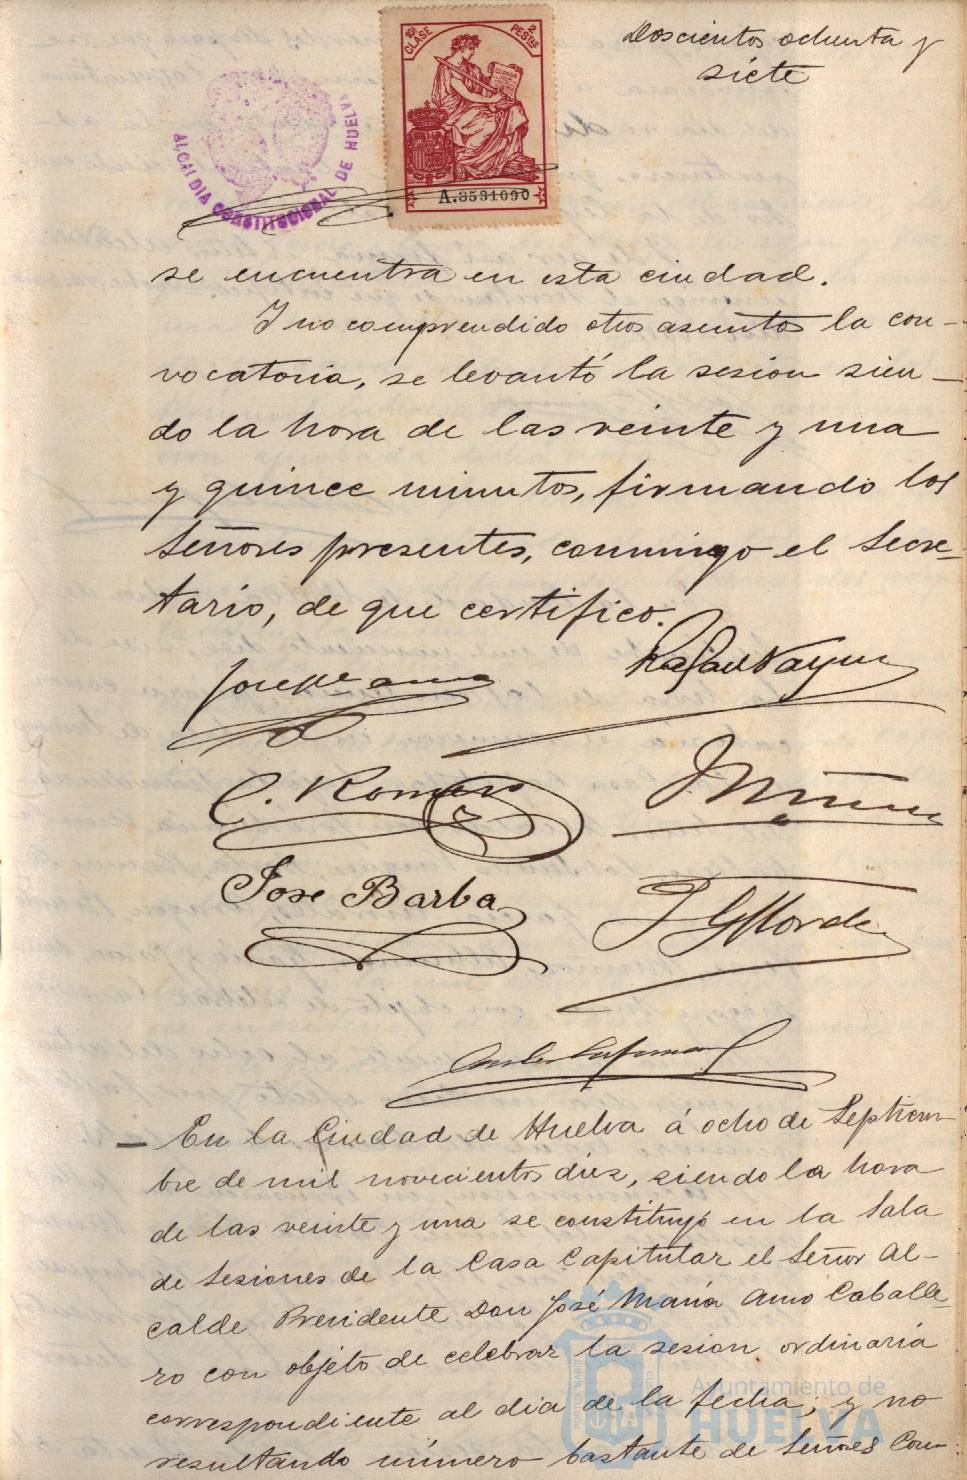 Doscientos ochenta y
siete
ALCALDIA CONSTITUCIONAL DE HUELVA
10ª CLASE
2 PESTAS
CODIGO
A.3531090
se encuentra en esta ciudad.
Y no comprendido otros asuntos la con-
vocatoria, se levantó la sesion sien-
do la hora de las veinte y una
y quince minutos, firmando los
Señores presentes, conmigo el Secre-
tario, de que certifico.
José Mª Amo
Rafael Vazquez
C. Romero
J. Muñoz
Jose Barba
En la Ciudad de Huelva á ocho de Septiem-
bre de mil novecientos diez, siendo la hora
de las veinte y una se constituyó en la Sala
de Sesiones de la Casa Capitular el Señor Al-
calde Presidente Don José Maria Amo Caballe-
ro con objeto de celebrar la sesion ordinaria
correspondiente al dia de la fecha; y no
resultando número bastante de Señores Con-
Ayuntamiento de
HUELVA